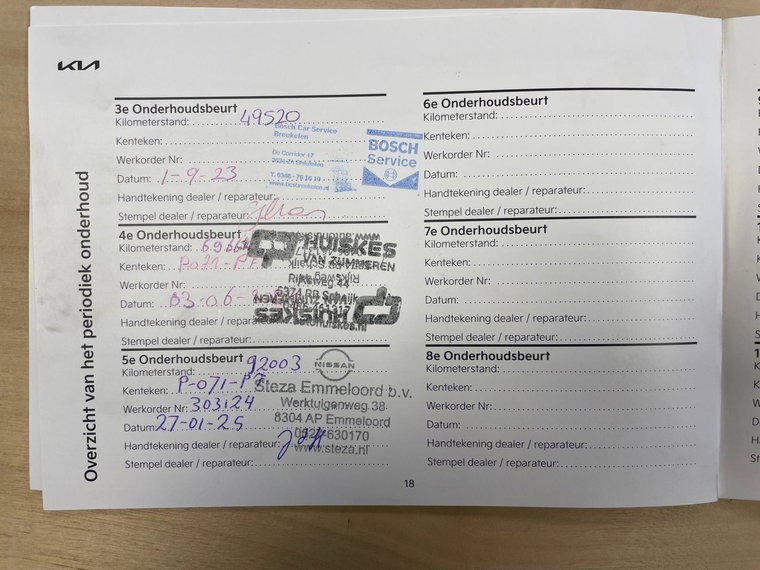 KIA
Overzicht van het periodiek onderhoud
3e Onderhoudsbeurt
Kilometerstand: 49520
Bosch Car Service
Breukelen
Kenteken:
De Corridor 17
Werkorder Nr:
T. 0346 - 76 16 10
Datum: 1-9-23
www.boschbreukelen.nl
BOSCH
Service
Handtekening dealer / reparateur:
Stempel dealer / reparateur:
4e Onderhoudsbeurt
Kilometerstand:
HUISKES
VAN ZUMMEREN
Kenteken:
Rijksweg 44
Werkorder Nr:
5374 RB Schaijk
Datum: 03-06-
HUISKES
Handtekening dealer / reparateur:
www.autohuiskes.nl
Stempel dealer / reparateur:
5e Onderhoudsbeurt
Kilometerstand: 92003
NISSAN
Kenteken: P-071-PZ
Steza Emmeloord b.v.
Werkorder Nr: 303124
Werktuigenweg 38
Datum: 27-01-25
8304 AP Emmeloord
Handtekening dealer / reparateur:
0527-630170
www.steza.nl
Stempel dealer / reparateur:
6e Onderhoudsbeurt
Kilometerstand:
Kenteken:
Werkorder Nr:
Datum:
Handtekening dealer / reparateur:
Stempel dealer / reparateur:
7e Onderhoudsbeurt
Kilometerstand:
Kenteken:
Werkorder Nr:
Datum:
Handtekening dealer / reparateur:
Stempel dealer / reparateur:
8e Onderhoudsbeurt
Kilometerstand:
Kenteken:
Werkorder Nr:
Datum:
Handtekening dealer / reparateur:
Stempel dealer / reparateur:
18